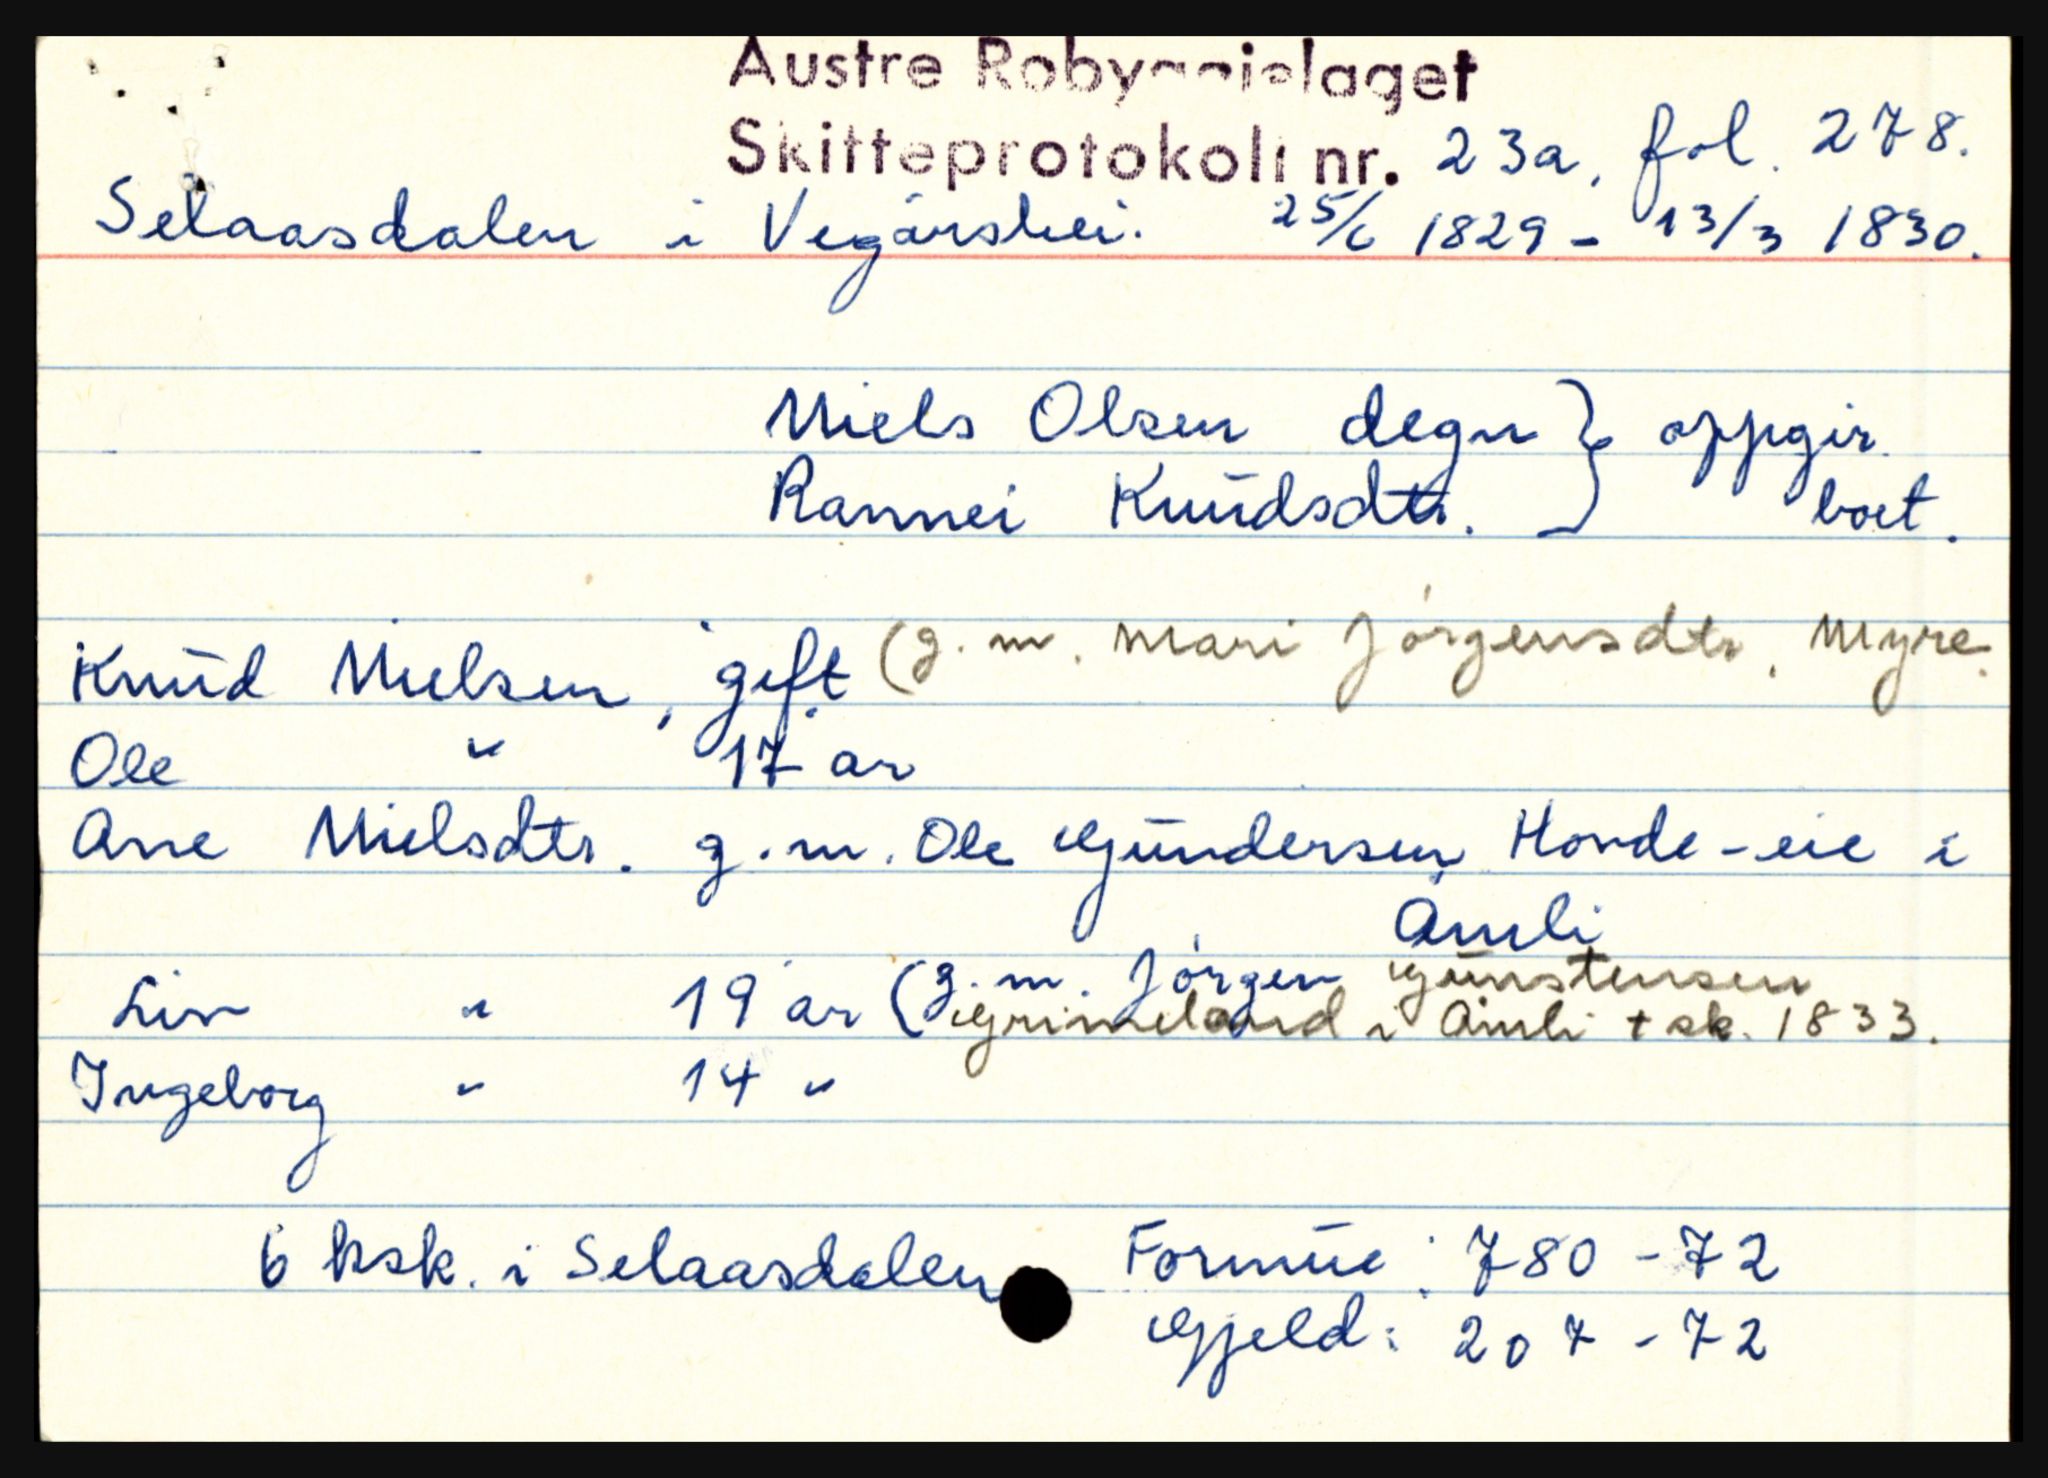 Austre Robyggjelaget
Skifteprotokoll nr. 23a, fol. 278.
Selaasdalen i Vegårshei. 25/6 1829 - 13/3 1830.
Niels Olsen degn } oppgir
Rannei Knudsdtr. } boet.
Knud Nielsen, gift (g.m. Mari Jörgensdtr, Myre.
Ole " 17 år
Ane Nielsdtr. g.m. Ole Gundersen Hovde-eie i
Åmli
Liv " 19 år (g.m. Jörgen Gunstensen
Grimeland i Åmli + sk. 1833.
Ingeborg " 14 "
6 ksk. i Selaasdalen Formue: 780 - 72
Gjeld: 207 - 72